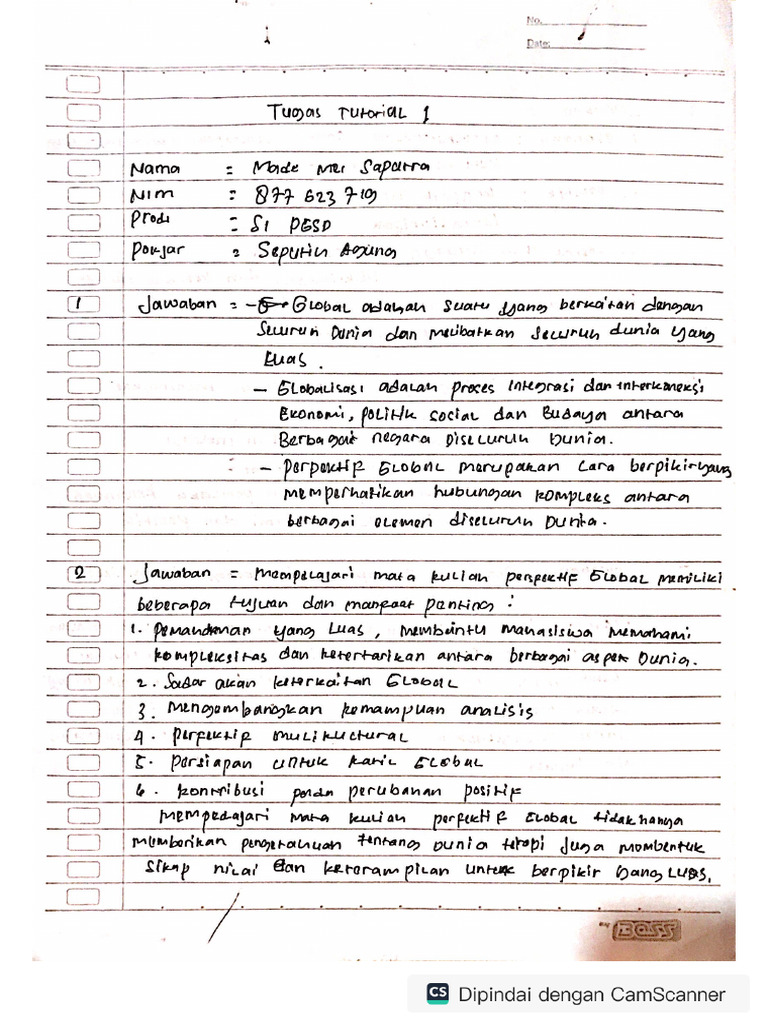 No.
Date:
Tugas Tutorial 1
Nama = Made Mei Saputra
Nim = 877 623 719
Prodi = S1 PGSD
Pokjar = Seputih Agung
1 Jawaban = - Global adalah suatu yang berkaitan dengan
seluruh Dunia dan melibatkan seluruh dunia yang
Luas.
- Globalisasi adalah proces integrasi dan interkoneksi
Ekonomi, politik social dan Budaya antara
Berbagai negara Diseluruh Dunia.
- perpektif Global merupakan cara berpikir yang
memperhatikan hubungan kompleks antara
berbagai elemen diseluruh Dunia.
2 Jawaban = mempelajari mata kuliah perspektif Global memiliki
beberapa tujuan dan manfaat penting :
1. pemandaman yang Luas, membantu mahasiswa memahami
kompleksitas dan ketertarikan antara berbagai aspek Dunia.
2. Sadar akan keterkaitan Global
3. Mengembangkan kemampuan analisis
4. perfektif mulikuctural
5. Persiapan untuk karir Global
6. kontribusi pada perubahan positif
mempelajari mata kuliah perfektif Global tidak hanya
memberikan pengetahuan tentang Dunia tetapi Juga membentuk
sikap nilai dan keterampilan untuk berpikir yang Luas.
BOSS
CS Dipindai dengan CamScanner